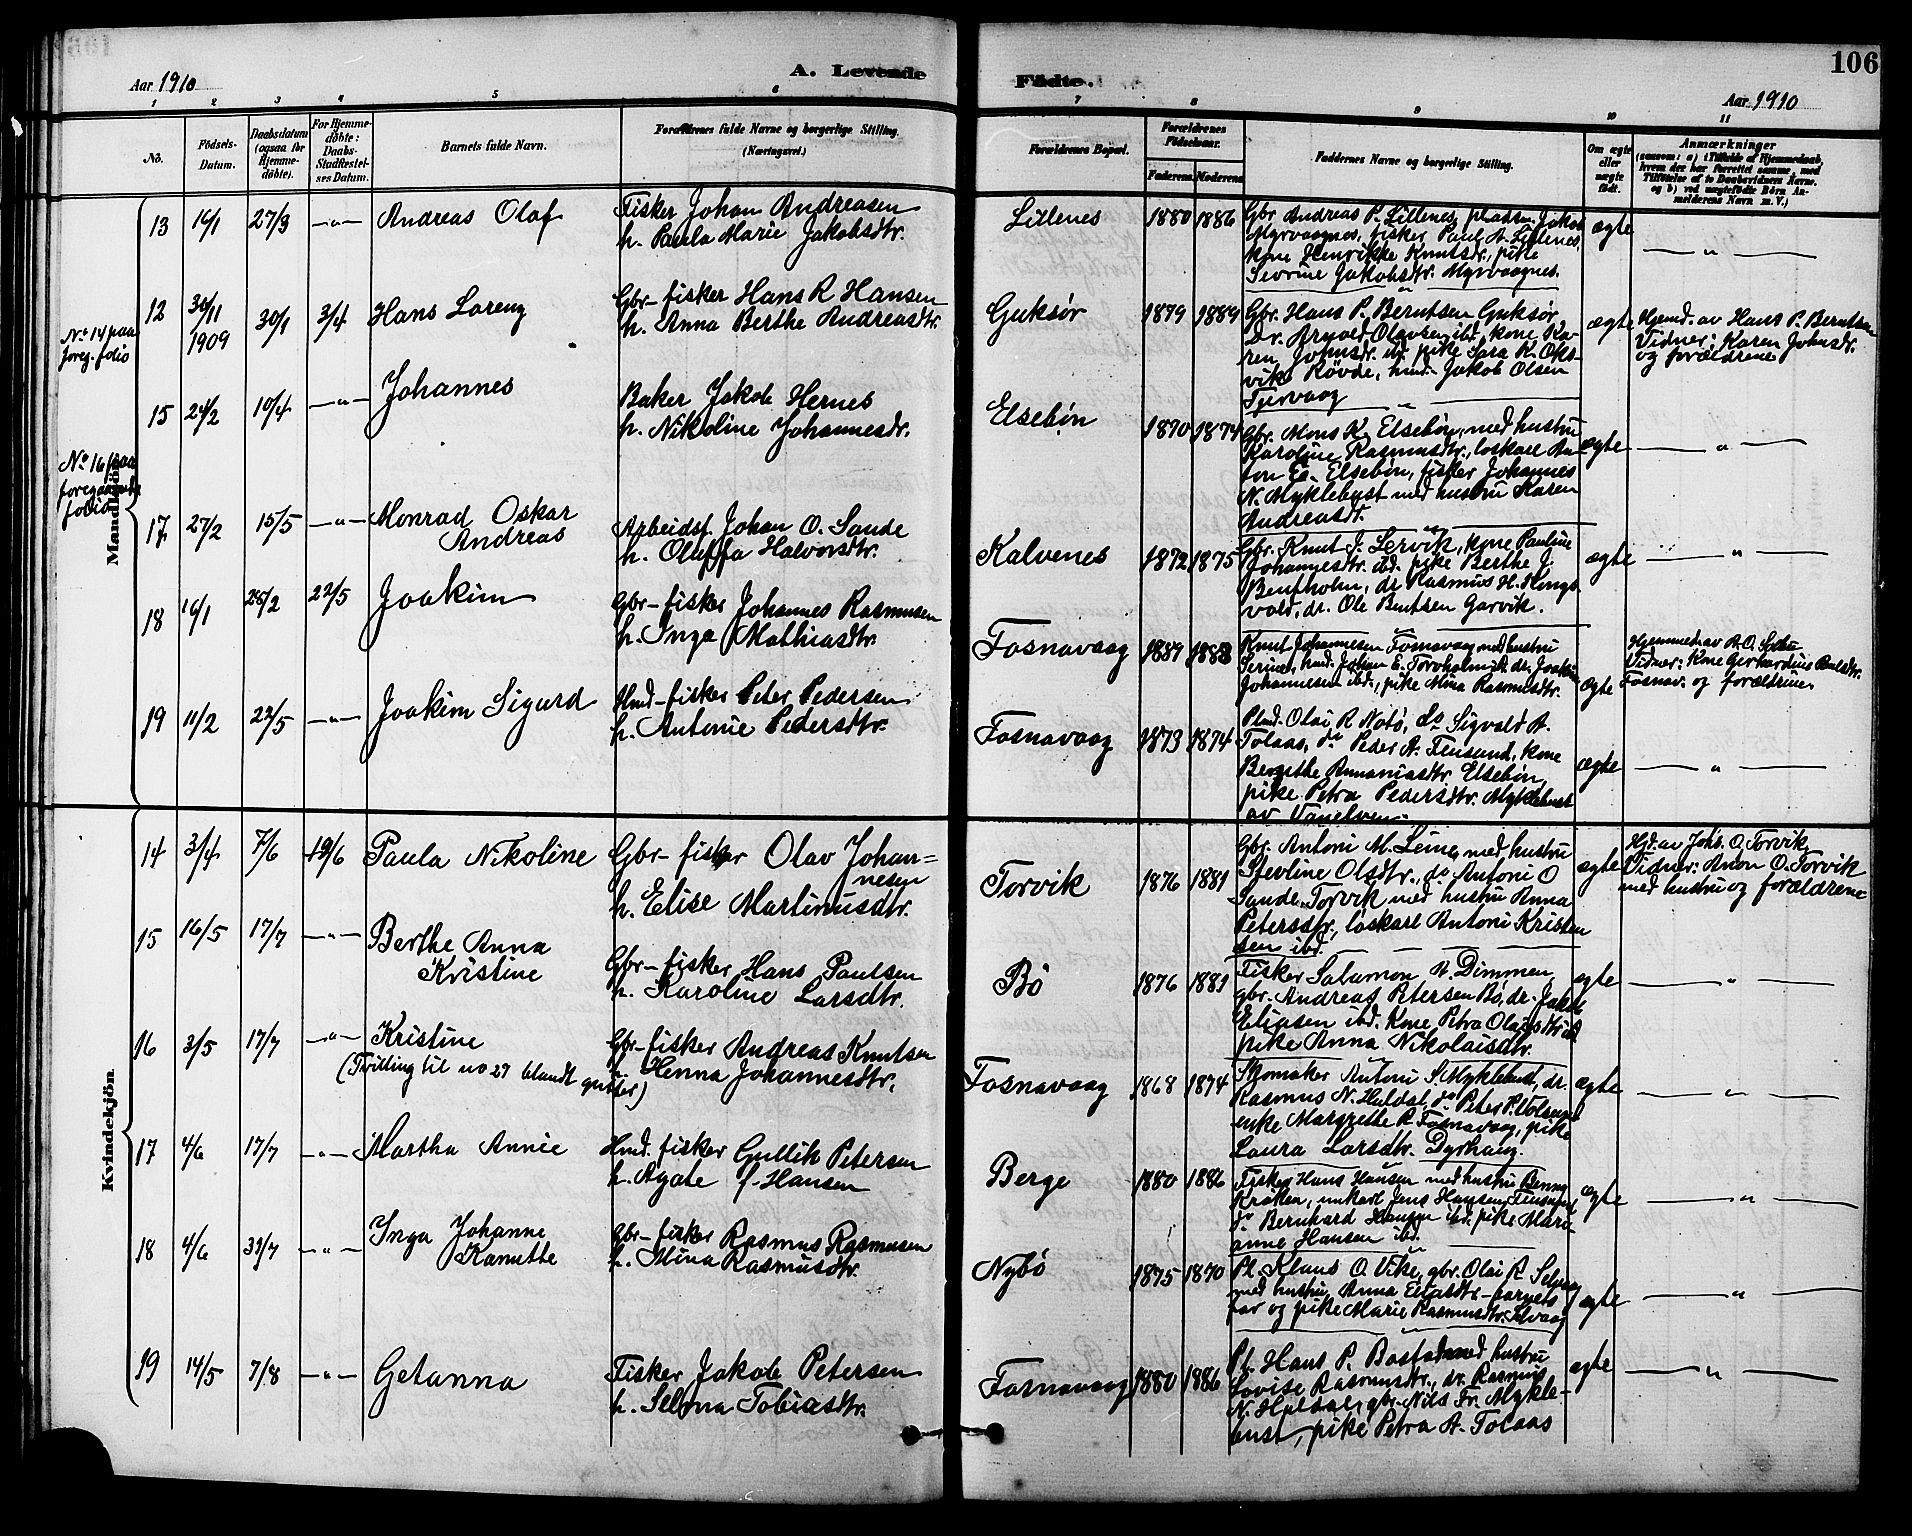 106
Aar 1910
A. Levende
Födte.
Aar 1910
1 2 3 4 5 6 7 8 9 10 11
No.
Födsels-
Datum.
Daabsdatum
(ogsaa for
Hjemme-
döbte).
For Hjemme-
döbte:
Daabs-
Stadfæstel-
ses Datum.
Barnets fulde Navn.
Forældrenes fulde Navne og borgerlige Stilling.
(Næringsvei.)
Forældrenes Bopæl.
Forældrenes
Födselsaar.
Faderens. Moderens
Faddernes Navne og borgerlige Stilling.
Om ægte
eller
uægte
født.
Anmærkninger
(saasom: a) i Tilfælde af Hjemmedaab,
hvem der har forrettet samme, med
Tilföielse af to Daabsvidners Navne,
og b) ved uægtefödte Börn An-
melderens Navn m. V.)
Mandkjön.
13 16/1 27/3 -"- Andreas Olaf
Fisker Johan Andreasen
h. Paula Marie Jakobsdtr.
Lillenes 1880 1886
Gbr. Andreas P. Lillenes, pladsm. Jakob
Myrvaagnes, fisker Paul A. Lillenes,
kone Henrikke Knutsdr., pike
Sevrine Jakobsdtr. Myrvaagnes.
ægte - " -
12 30/11 1909 30/1 3/4 Hans Lorenz
Gbr-fisker Hans R Hansen
h. Anna Berthe Andreasdtr.
Guksør 1879 1889
Gbr. Hans P. Berntsen Guksør,
Dr. Arnold Olavsen ibd. kone Ka-
ren Johnsdr. ibd. pike Sara K. Oks-
vik, Rövde, hmd. Jakob Olsen
Tjervaag
ægte
Hjemd. av Hans P. Berntsen
Vidner: Karen Johnsdr.
og forældrene
No 14 paa
foreg. folio
15 24/2 10/4 -"- Johannes
Baker Jakob Hernes
h. Nikoline Johannesdr.
Elsebøn 1870 1874
Gbr. Mons K. Elsebøn, med hustru
Karoline Rasmusdtr., løskarl An-
ton E. Elsebøn, fisker Johannes
N. Myklebust med hustru Karen
Andreasdr.
ægte - " -
No 16 paa
foregaaende
folio
17 27/2 15/5 -"- Monrad Oskar
Andreas
Arbeidsf. Johan O. Sande
h. Oluffa Halvorsdtr.
Kalvenes 1872 1875
Gbr. Knut J. Lervik, kone Pauline
Johannesdtr. ibd. pike Berthe J.
dr. Rasmus H. Rings-
vold, dr. Ole Bentsen Garvik.
ægte - " -
18 16/1 25/2 22/5 Joakim
Gbr-fisker Johannes Rasmusen
h. Inga Mathiasdtr.
Fosnavaag 1889 1888
Knut Johannesen Fosnavaag med hustru
hmd. Johan E. Torvholm, dr. Joakim
Johannesen ibd., pike Mina Rasmusdtr.
ægte
Hjemmed. av R. O.
Vidner: Kone Gerhardine Paulsdtr.
Fosnav. og forældrene
19 11/2 22/5 -"- Joakim Sigurd
Hmd-fisker Peter Pedersen
h. Antonie Pedersdtr.
Fosnavaag 1873 1874
Plmd. Olai R. Notö, do Sigvald A.
Tolaas, do Peder A. Flusund, kone
Bergithe Annaniasdtr. Elsebön,
pike Petra Pedersdtr. Myklebust
av Vanelven.
ægte - " -
Kvindekjön.
14 3/4 7/6 19/6 Paula Nikoline
Gbr-fisker Olav Johan=
nesen
h. Elise Martinusdtr.
Torvik 1876 1881
Gbr. Antoni M. Leine, med hustru
Stevline Olsdtr., do Antoni O
Sande, Torvik med hustru Anna
Petersdtr., løskarl Antoni Kristen
sen ibd.
ægte
Hjd. av Johs. O. Torvik,
Vidner: Anon O. Torvik
med hustru og forældrene
15 16/5 17/7 -"- Berthe Anna
Kristine
Gbr-fisker Hans Paulsen
h. Karoline Larsdtr.
Bö 1876 1881
Fisker Salamon A. Dimmen,
gbr. Andreas Petersen Bö, dr. Jakob
Eliasen ibd. Kone Petra Olaisdtr ibd
pike Anna Nikolaisdtr.
ægte - " -
16 3/5 17/7 -"- Kristine
(Tvilling til no 27 blandt gutter)
Gbr-fisker Andreas Knutsen
h. Henna Johannesdtr.
Fosnavaag 1868 1874
Skomaker Antoni S. Myklebust, dr.
Rasmus N. Huldal, do Peter P. Volsund
enke Margrethe R. Fosnavaag, pike
Laura Larsdtr. Dyrhaug.
ægte - " -
17 4/6 17/7 -"- Martha Annie
Hmd. fisker Gullik Petersen
h. Agate f. Hansen
Berge 1880 1886
Fisker Hans Hansen med hustru Benna
Kraken, unkarl Jens Hansen, Flusund,
do Bernhard Hansen ibd. pike Mari-
anne Hansen ibd.
ægte - " -
18 4/6 31/7 -"- Inga Johanne
Kanutte
Gbr-fisker Rasmus Rasmusen
h. Mina Rasmusdtr.
Nybö 1875 1870
Pl. Klaus O. Vike, gbr. Olai R. Selvaag
med hustru, Anna Eliasdtr- barnets
far og pike Marie Rasmusdtr. Selvaag
ægte - " -
19 14/5 7/8 -"- Getanna
Fisker Jakob Petersen
h. Selma Tobiasdtr.
Fosnavaag 1880 1886
Pl. Hans P. Bostad med hustru
Lovise Rasmusdtr., dr. Rasmus
N. Huldal, gbr. Nils Fr. Mykle-
bust, pike Petra A. Tolaas
ægte - " -